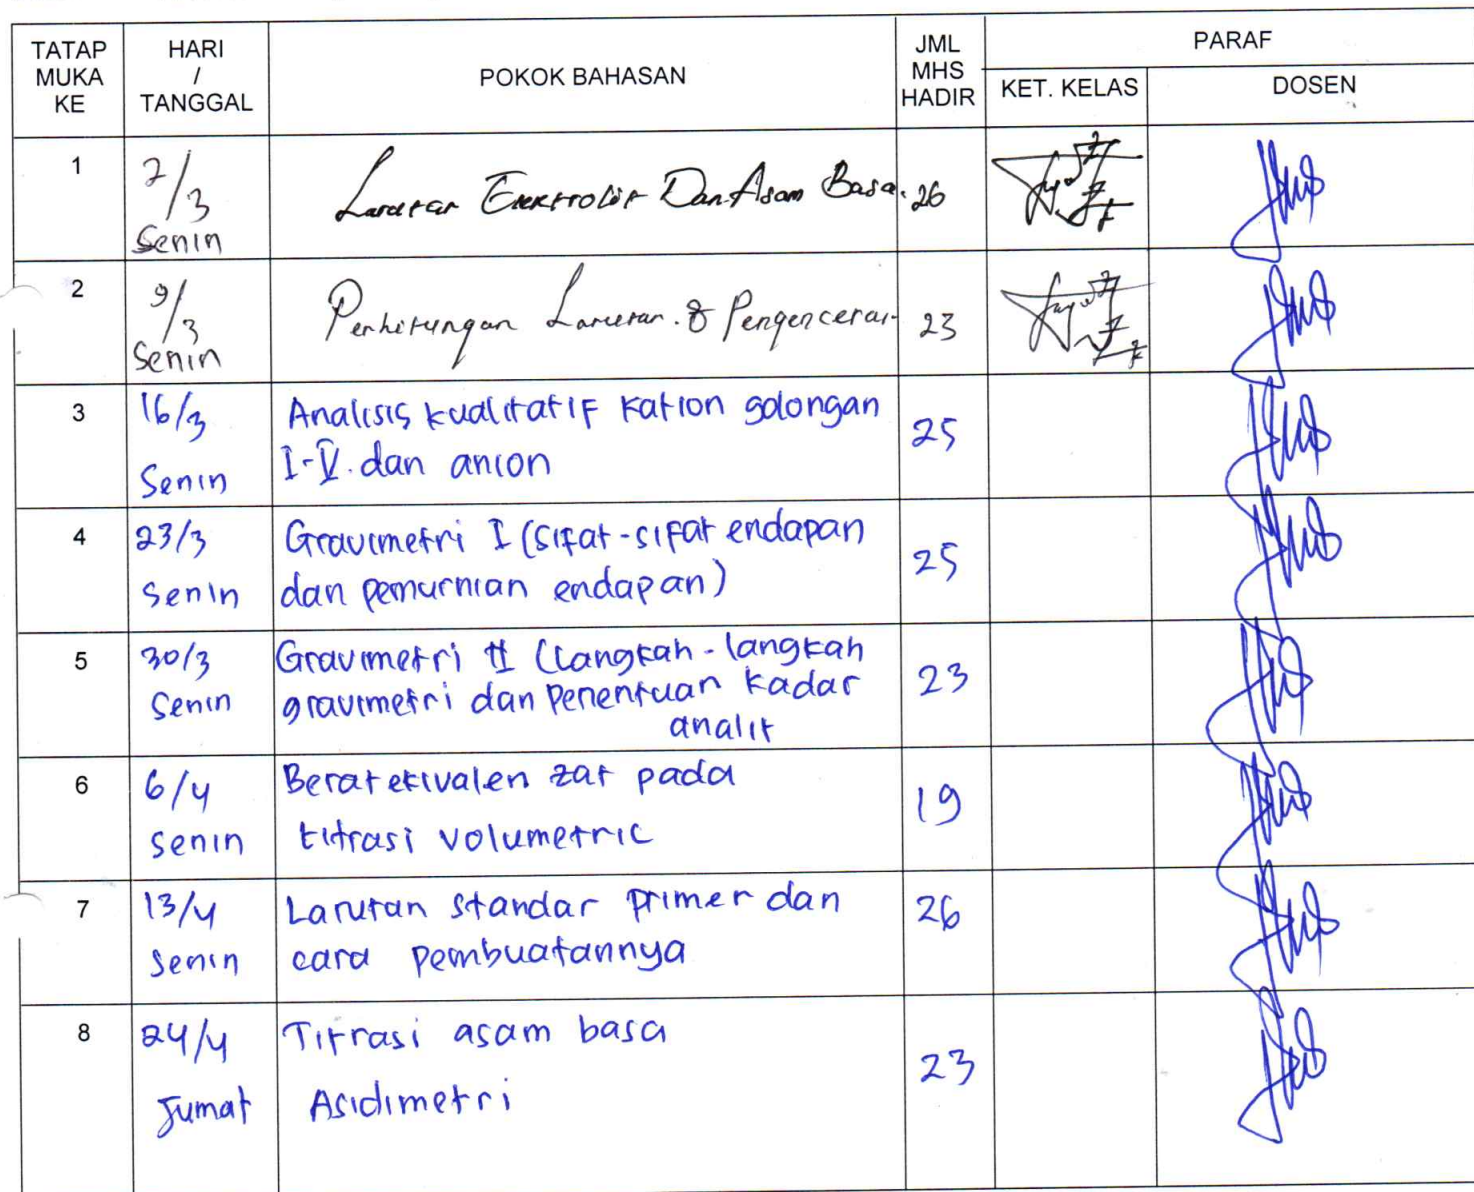 TATAP MUKA KE
HARI / TANGGAL
POKOK BAHASAN
JML MHS HADIR
PARAF
KET. KELAS
DOSEN
1
2/3
Senin
Larutan Elektrolit Dan Asam Basa.
26
2
9/3
Senin
Perhitungan Larutan & Pengenceran
23
3
16/3
Senin
Analisis kualitatif kation golongan
I-V. dan anion
25
4
23/3
Senin
Gravimetri I (sifat-sifat endapan
dan pemurnian endapan)
25
5
30/3
Senin
Gravimetri II (Langkah-langkah
gravimetri dan penentuan kadar
analit
23
6
6/4
Senin
Berat ekivalen zat pada
titrasi volumetric
19
7
13/4
Senin
Larutan standar primer dan
cara pembuatannya
26
8
24/4
Jumat
Titrasi asam basa
Asidimetri
23